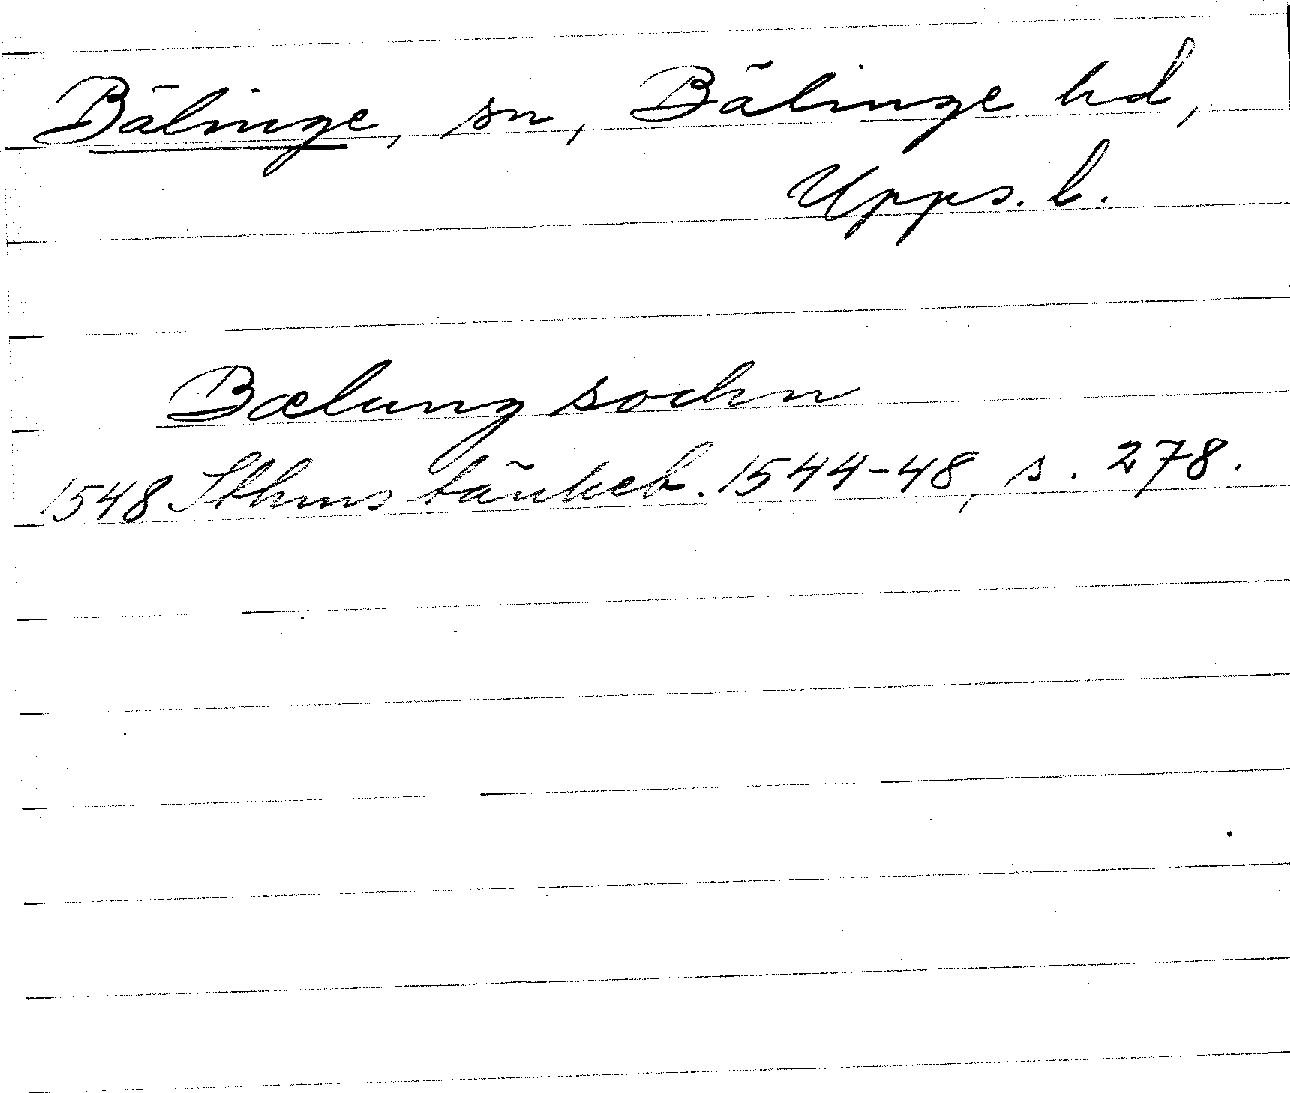 Bälinge, sn, Bälinge hd,
Upps. l.
Bælung sochn
1548 Sthms tänkeb. 1544-48, s. 278.